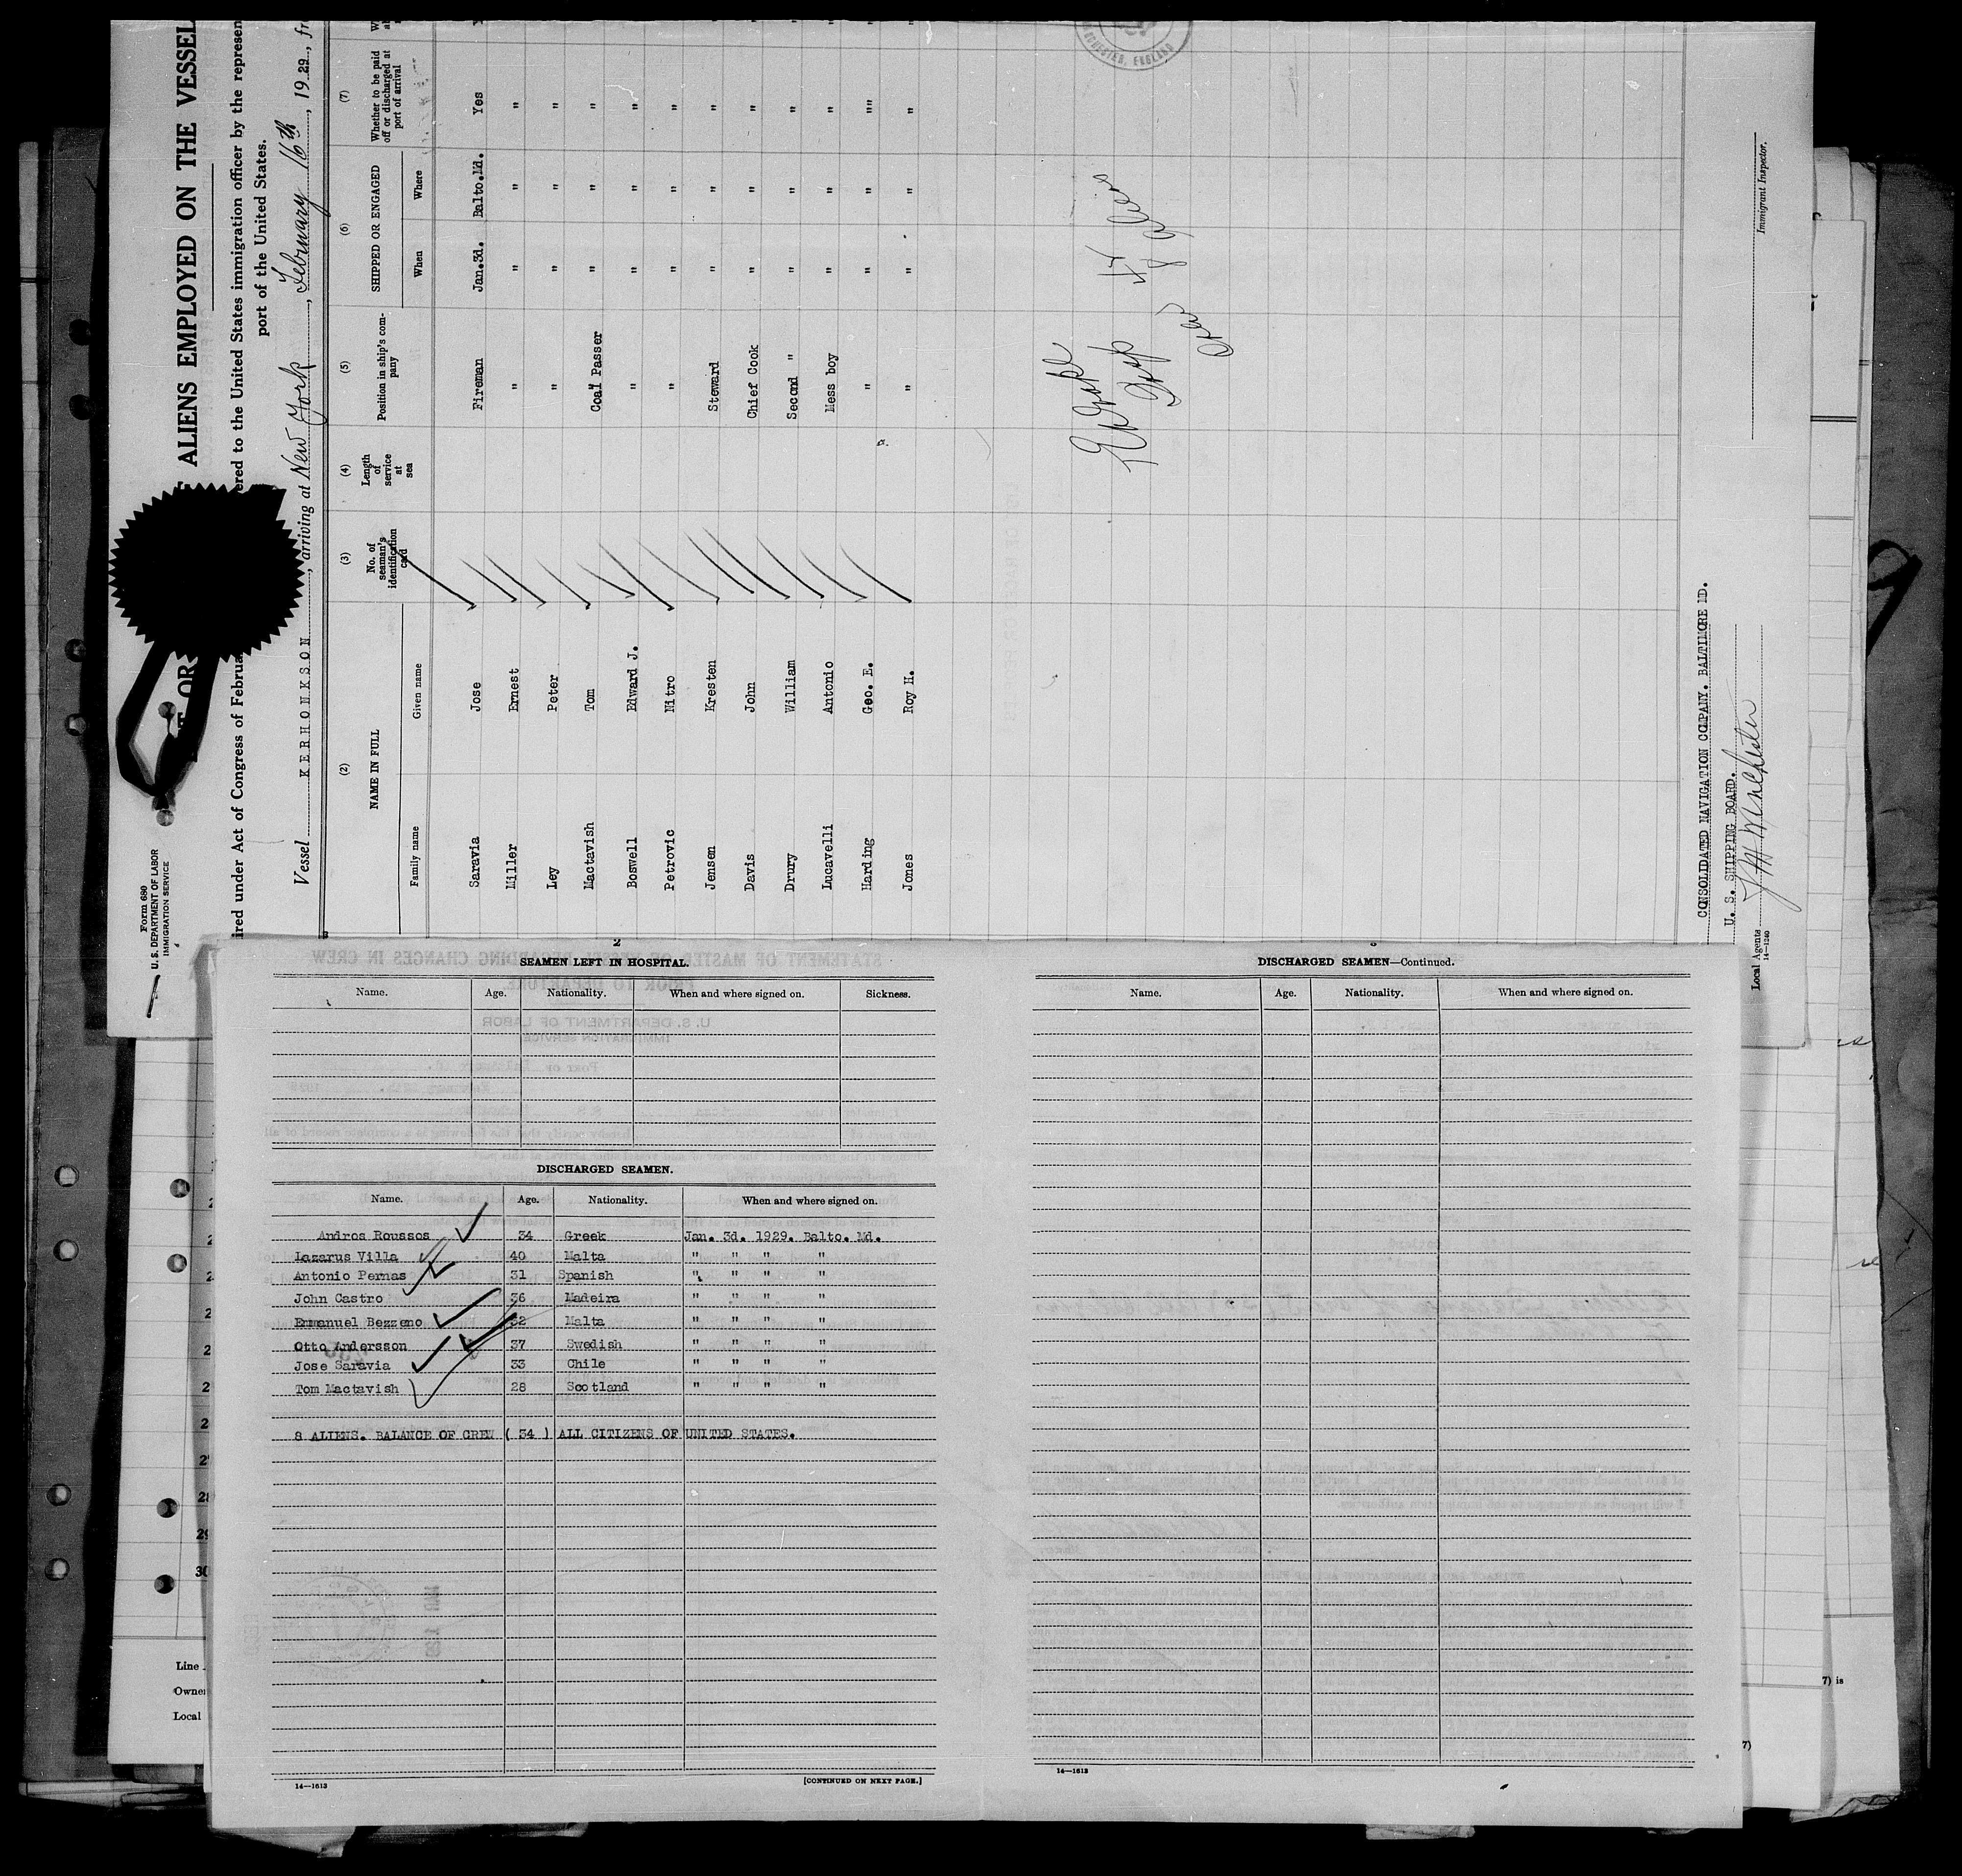 Form 680
U. S. DEPARTMENT OF LABOR
IMMIGRATION SERVICE
ALIENS EMPLOYED ON THE VESSEL
ired under Act of Congress of Februa
ered to the United States immigration officer by the represen
port of the United States.
Vessel KERHONKSON, arriving at New York, February 16th, 1929, fr
(2) (3) (4) (5) (6) (7)
NAME IN FULL No. of seaman's identification card Length of service at sea Position in ship's company SHIPPED OR ENGAGED Whether to be paid off or discharged at port of arrival
Family name Given name When Where
Saravia Jose Fireman Jan.3d. Balto.Md. Yes
Miller Ernest " " " "
Ley Peter " " " "
Mactavish Tom Coal Passer " " "
Boswell Edward J. " " " "
Petrovic Nitro " " " "
Jensen Kresten Steward " " "
Davis John Chief Cook " " "
Drury William Second " " " "
Lucavelli Antonio Mess boy " " "
Harding Geo. E. " " " ""
Jones Roy H. " " " "
Crew 42
8 aliens
CHESTER, ENGLAND
CONSOLIDATED NAVIGATION COMPANY. BALTIMORE MD.
U. S. SHIPPING BOARD.
Local Agents
14—1240
Immigrant Inspector.
SEAMEN LEFT IN HOSPITAL.
Name. Age. Nationality. When and where signed on. Sickness.
DISCHARGED SEAMEN.
Name. Age. Nationality. When and where signed on.
Andros Roussos 34 Greek Jan. 3d. 1929. Balto. Md.
Lazarus Villa 40 Malta " " " "
Antonio Pernas 31 Spanish " " " "
John Castro 36 Madeira " " " "
Emmanuel Bezzeno 32 Malta " " " "
Otto Andersson 37 Swedish " " " "
Jose Saravia 33 Chile " " " "
Tom Mactavish 28 Scotland " " " "
8 ALIENS. BALANCE OF CREW ( 34 ) ALL CITIZENS OF UNITED STATES.
14—1613
[CONTINUED ON NEXT PAGE.]
DISCHARGED SEAMEN—Continued.
Name. Age. Nationality. When and where signed on.
14—1613
29
30
Line
Owner
Local
7) is
7)